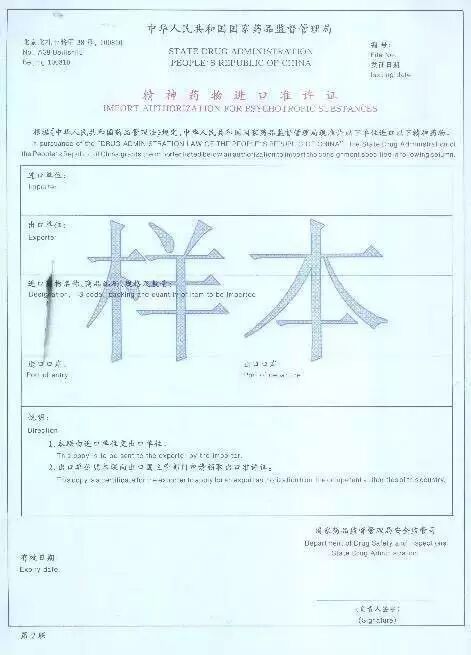 中华人民共和国国家药品监督管理局
STATE DRUG ADMINISTRATION
PEOPLE'S REPUBLIC OF CHINA
编号:
File No.
发证日期
Issuing date
精神药物进口准许证
IMPORT AUTHORIZATION FOR PSYCHOTROPIC SUBSTANCES
根据《中华人民共和国药品管理法》规定,中华人民共和国国家药品监督管理局现准许以下单位进口以下精神药物。
In pursuance of the "DRUG ADMINISTRATION LAW OF THE PEOPLE'S REPUBLIC OF CHINA" the State Drug Administration of
the People's Republic of China grants the importer listed below an authorization to import the consignment specified in following column.
进口单位:
Importer
出口单位:
Exporter
样本
Designation, packing and quantity of item to be imported
进口口岸
Port of entry
出口口岸
Port of departure
说明:
Direction
1.本联由进口单位交出口单位。
This copy is to be sent to the exporter by the importer.
2.出口单位凭本联向出口国主管部门申请领取出口准许证。
This copy is a certificate for the exporter to apply for an export authorization from the competent authorities of this country.
国家药品监督管理局安全监管司
Department of Drug Safety and Inspections
State Drug Administration
有效日期
Expiry date.
(负责人签字)
(Signature)
第2联